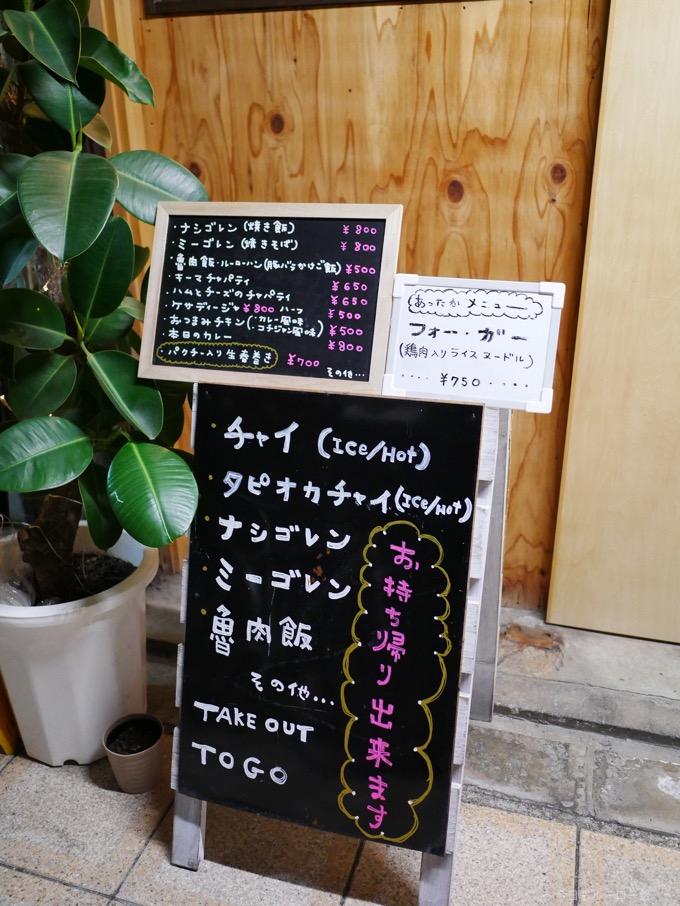 ・ナシゴレン(焼き飯) ¥800
・ミーゴレン(焼きそば) ¥800
・魯肉飯・ルーローハン(豚バラかけご飯) ¥500
・キーマチャパティ ¥650
・ハムとチーズのチャパティ ¥650
・ケサディージャ ¥800 ハーフ ¥500
・おつまみチキン(・カレー風味 ・コチジャン風味) ¥500
・本日のカレー ¥800
・パクチー入り生春巻き ¥700
その他...
あったかメニュー
フォー・ガー
(鶏肉入りライスヌードル)
.... ¥750 ....
・チャイ(Ice/Hot)
・タピオカチャイ(Ice/Hot)
・ナシゴレン
・ミーゴレン
・魯肉飯
その他...
TAKE OUT
TO GO
お持ち帰り出来ます